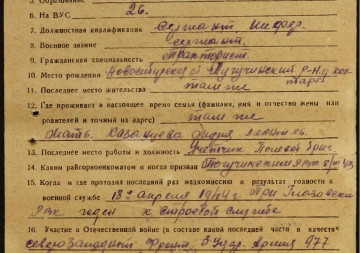 5. Образование
6. На ВУС 26.
7. Должностная квалификация сержант
8. Военное звание сержант.
9. Гражданская специальность тракторист.
10. Место рождения Новосибирская Р-Н,
11. Последнее место жительства там же
12. Где проживает в настоящее время семья (фамилия, имя и отчество жены или
родителей и точный их адрес) там же
мать. Казанцева
13. Последнее место работы и должность Учётчик Полевой бриг
14. Каким райгорвоенкоматом и когда призван
15. Когда и где проходил последний раз медкомиссию и результат годности к
военной службе 18го апреля 1944г. При Глазовский
РВК годен к строевой службе
16. Участие в Отечественной войне (в составе какой последней части в качестве
северозападный фронт. 3 удар. Армия 977